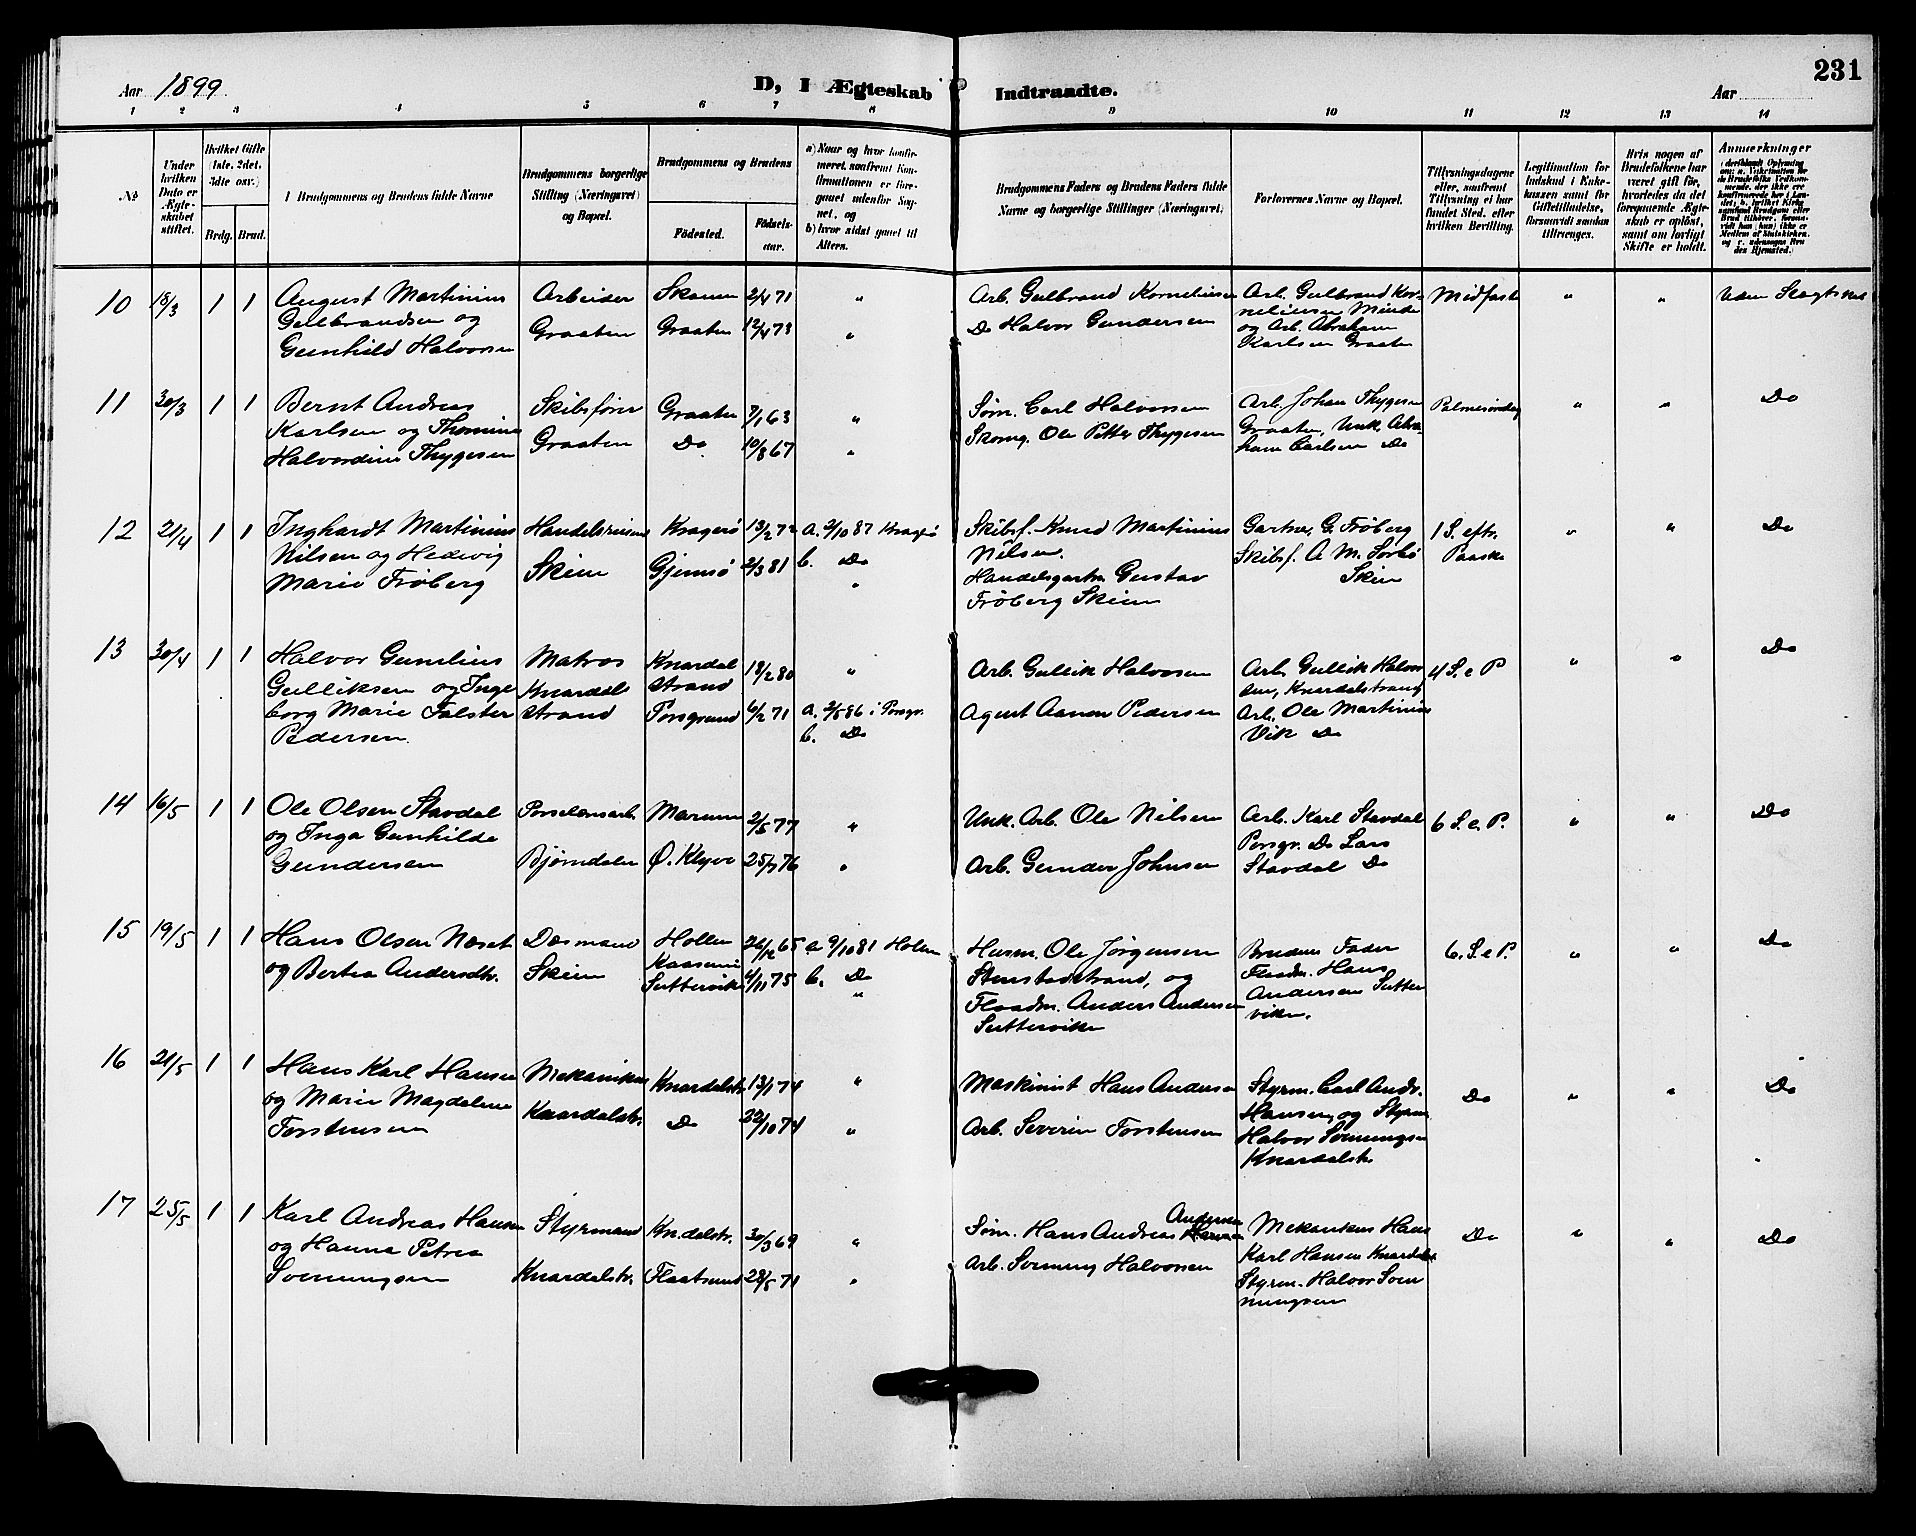 231
Aar 1899.
D, I Ægteskab Indtraadte.
Aar
1 2 3 4 5 6 7 8 9 10 11 12 13 14
No
Under hvilken Dato er Ægteskabet stiftet.
Hvilket Gifte (1ste, 2det, 3die osv.)
Brdg. Brud.
Brudgommens og Brudens fulde Navne
Brudgommens borgerlige Stilling (Næringsvei) og Bopæl.
Brudgommens og Brudens
Fødested.
Fødselsaar.
a) Naar og hvor konfirmeret, saafremt Konfirmationen er foregaaet udenfor Sognet, og
b) hvor sidst gaaet til Alters.
Brudgommens Faders og Brudens Faders fulde Navne og borgerlige Stillinger (Næringsvei)
Forlovernes Navne og Bopæl.
Tillysningsdagene eller, saafremt Tillysning ei har fundet Sted, efter hvilken Bevilling.
Legitimation for Indskud i Enkekassen samt for Giftetilladelse, forsaavidt saadan tiltrænges.
Hvis nogen af Brudefolkene har været gift før, hvorledes da det foregaaende Ægteskab er opløst, samt om lovligt Skifte er holdt.
Anmærkninger
10 18/3 1 1 August Martinius Arbeider Skaun 2/4 71 " Arb. Gulbrand Korneliusen Arb. Gulbrand Kor- Midfaste " "
Gulbrandsen og Graaten Graaten 12/4 73 " Do Halvor Gundersen neliusen Minde
Gunhild Halvorsen og Arb. Abraham
Karlsen Graaten
11 30/3 1 1 Bernt Andreas Skibsfører Graaten 7/1 63 " Søm. Carl Halvorsen Arb. Johan Thygesen Palmesøndag " " Do
Karlsen og Thomine Graaten Do 10/8 67 " Skomg. Ole Petter Thygesen Graaten, Unk. Abra-
Halvordine Thygesen ham Carlsen Do
12 21/4 1 1 Inghardt Martinius Handelsreisende Kragerø 13/2 72 a. 2/10 87 Kragerø Skibsf. Knud Martinius Gartner G. Frøberg 1 S. eftr. " " Do
Nilsen og Hedevig Skien Gjemsø 2/3 81 b. Do Nilsen. Skibsf. A. M. Sorbø Paaske
Marie Frøberg " Handelsgartn. Gustav Skien
Frøberg Skien
13 30/4 1 1 Halvor Gunelius Matros Knardal 18/2 80 " Arb. Gullik Halvorsen Arb. Gullik Halvor 4 S. e P " " Do
Gulliksen og Inge Knardal strand sen, Knardalstrand
borg Marie Falster strand Porsgrund 6/2 71 a. 2/5 86 i Porsgr. Agent Aanon Pedersen Arb. Ole Martinius
Pedersen. b. Do Vik Do
14 16/5 1 1 Ole Olsen Stavdal Porselænsarb. Marum 2/5 77 " Unk. Arb. Ole Nilsen Arb. Karl Stavdal 6 S. e. P. " " Do
og Inga Gunhilde Porsgr. Do Lars
Gundersen Bjørndalen Ø. Klyve 25/7 76 " Arb. Gunder Johnsen Stavdal Do
15 19/5 1 1 Hans Olsen Næset Dæsmand Hollen 26/12 65 a. 9/10 81 Holen Husm. Ole Jørgensen Brudens Fader 6. S. e P. " " Do
og Bertea Andersdtr. Skien 4/11 75 b. Do Stenstadstrand, og Flaadm. Hans
" Flaadm. Anders Andersen Andersen Sutter
Suttervika viken.
16 21/5 1 1 Hans Karl Hansen Mekaniker Knardalstr. 13/1 74 " Maskinist Hans Andersen Styrm. Carl Andr. Do " " Do
og Marie Magdalene Knardalstr. Do 22/10 74 " Arb. Severin Torstensen Hansen, og Styrm
Torstensen Halvor Sønnungsen
Knardalstr.
17 25/5 1 1 Karl Andreas Hansen Styrmand Kn.dalstr. 30/3 69 " Søm. Hans Andreas Andersen Mekanikus Hans Do " " Do
og Hanna Petrea Karl Hansen Knardalst.
Sønnungsen Knardalstr. Flaatsund 28/5 71 " Arb. Sønnung Halvorsen Styrm. Halvor Søn
nungsen